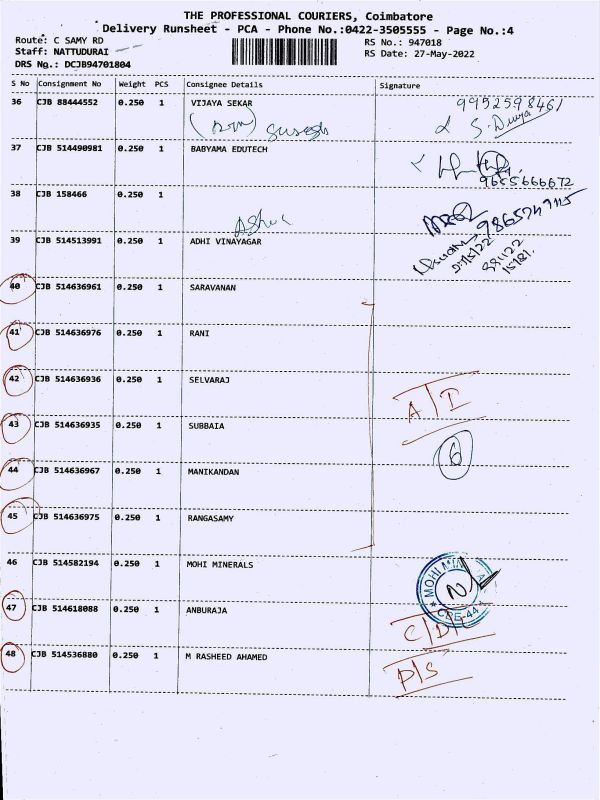 THE PROFESSIONAL COURIERS, Coimbatore
Delivery Runsheet - PCA - Phone No.:0422-3505555 - Page No.:4
Route: C SAMY RD
RS No.: 947018
Staff: NATTUDURAI
RS Date: 27-May-2022
DRS No.: DCJB94701804
S No Consignment No Weight PCS Consignee Details Signature
36 CJB 88444552 0.250 1 VIJAYA SEKAR 9952598461
S. Divya
37 CJB 514490981 0.250 1 BABYAMA EDUTECH
9655666672
38 CJB 158466 0.250 1
39 CJB 514513991 0.250 1 ADHI VINAYAGAR
40 CJB 514636961 0.250 1 SARAVANAN
41 CJB 514636976 0.250 1 RANI
42 CJB 514636936 0.250 1 SELVARAJ
A/I
43 CJB 514636935 0.250 1 SUBBAIA
6
44 CJB 514636967 0.250 1 MANIKANDAN
45 CJB 514636975 0.250 1 RANGASAMY
46 CJB 514582194 0.250 1 MOHI MINERALS
47 CJB 514618088 0.250 1 ANBURAJA
C/D
48 CJB 514536880 0.250 1 M RASHEED AHAMED
P/S